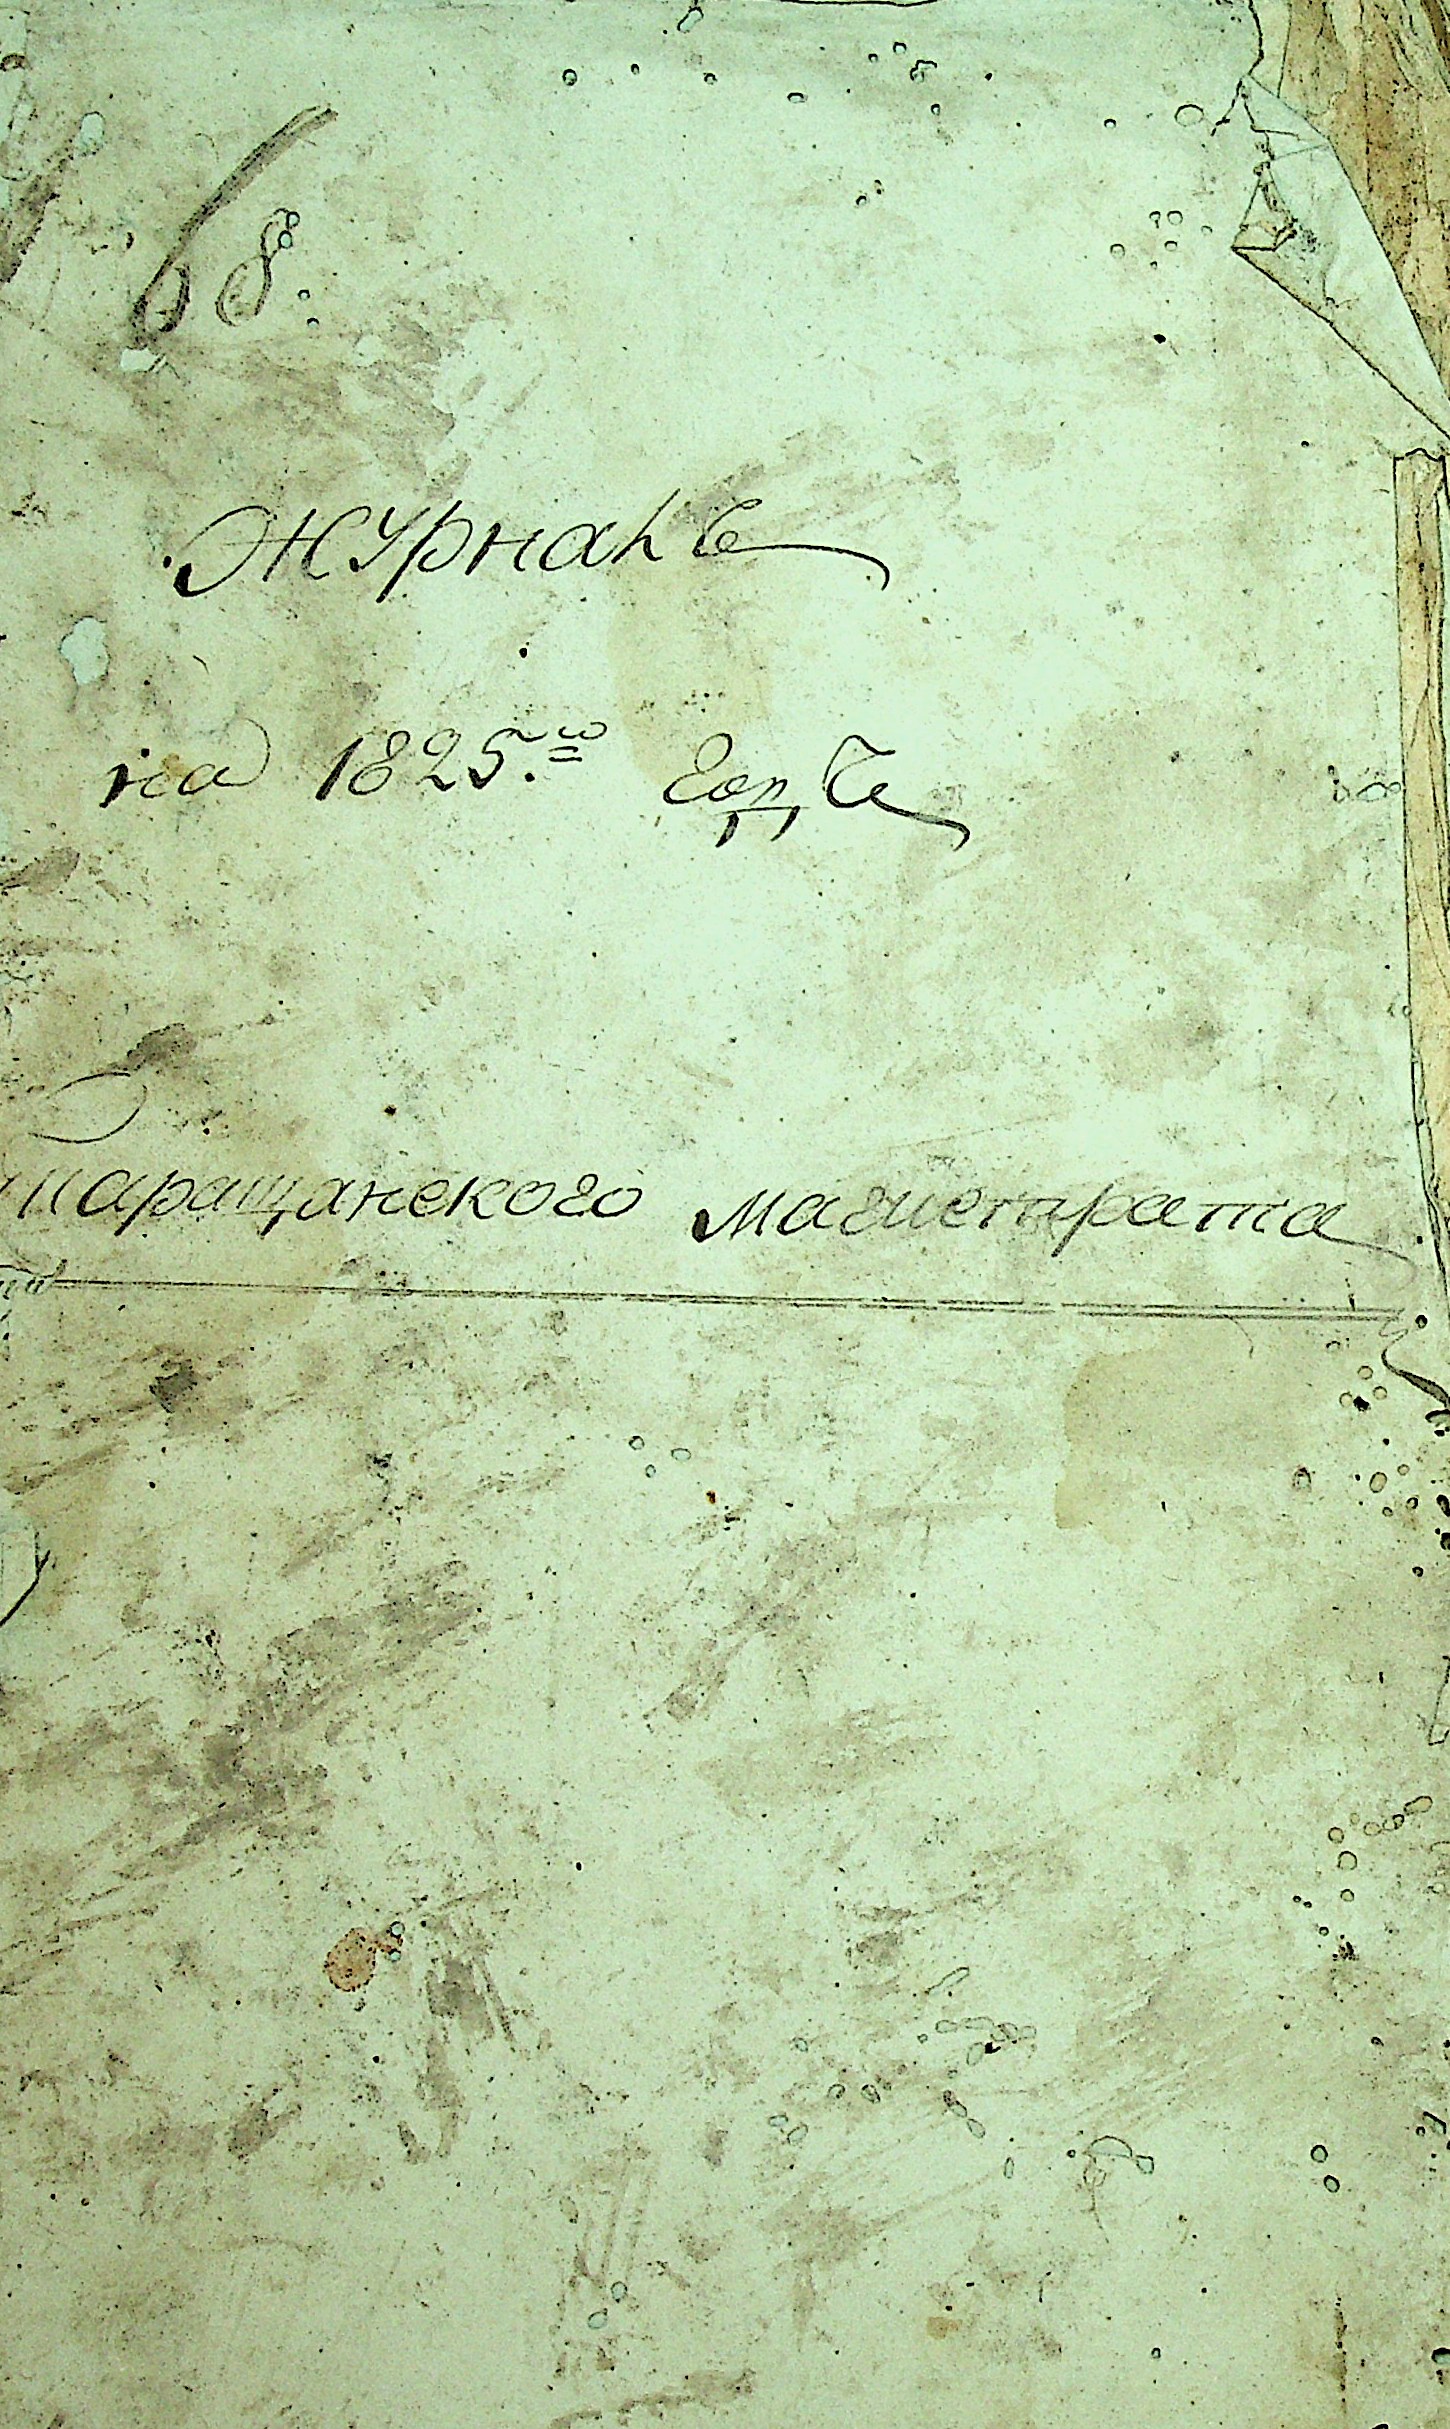 68
Журналъ
на 1825.й годъ
таращанского магистрата